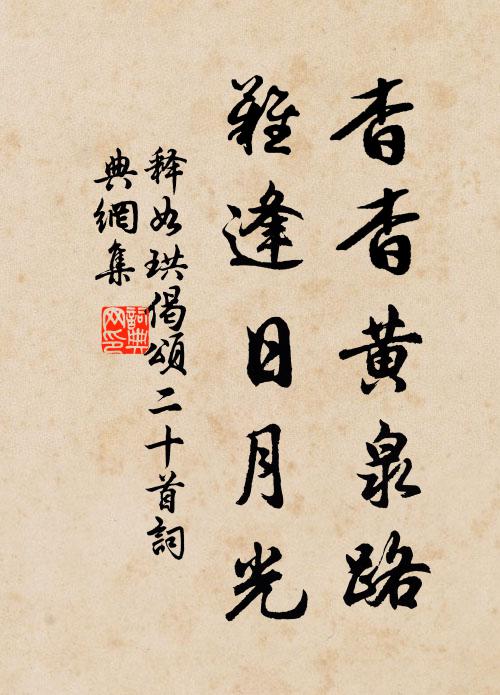 杳杳黄泉路
難逢日月光
释如珙偈頌二十首詞
典網集
詞典
网印